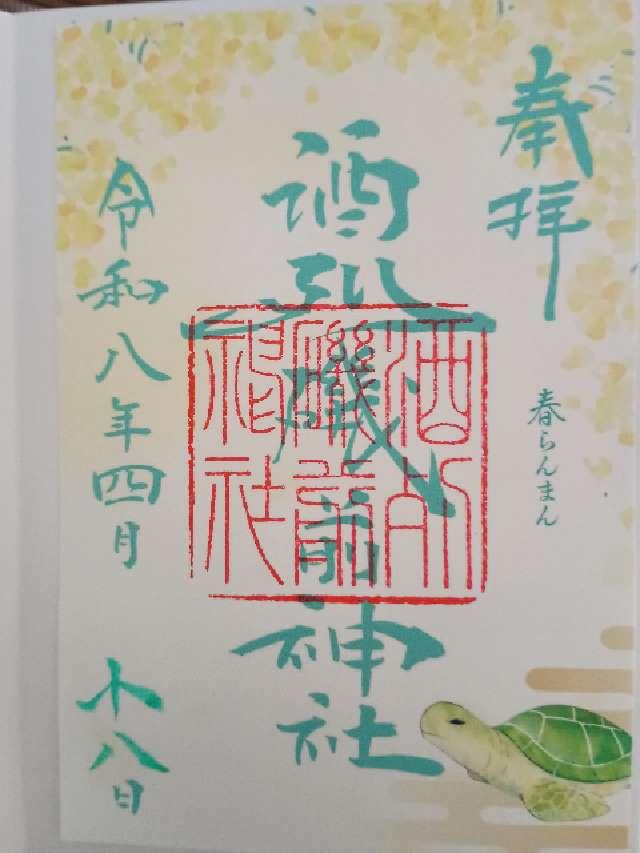 奉拝
春らんまん
酒列磯前神社
酒列
磯前
神社
令和八年四月
十八日